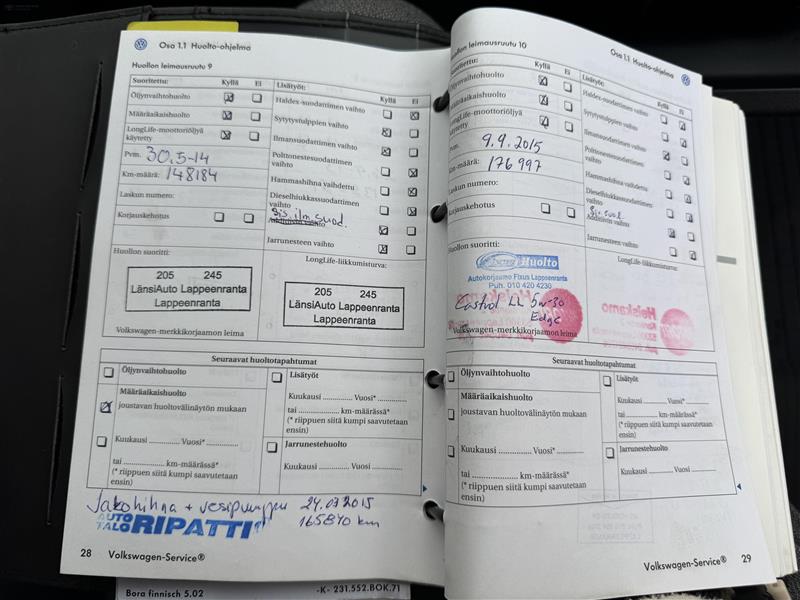 Osa 1.1 Huolto-ohjelma
Huollon leimausruutu 9
Suoritettu: Kyllä Ei
Öljynvaihtohuolto
Määräaikaishuolto
LongLife-moottoriöljyä
käytetty
Pvm. 30.5-14
Km-määrä: 148184
Laskun numero:
Korjauskehotus
Lisätyöt: Kyllä Ei
Haldex-suodattimen vaihto
Sytytystulppien vaihto
Ilmansuodattimen vaihto
Polttonestesuodattimen
vaihto
Hammashihna vaihdettu
Dieselhiukkassuodattimen
vaihto
sis. ilm. suod.
Jarrunesteen vaihto
Huollon suoritti:
LongLife-liikkumisturva:
205 245
LänsiAuto Lappeenranta
Lappeenranta
205 245
LänsiAuto Lappeenranta
Lappeenranta
Volkswagen-merkkikorjaamon leima
Seuraavat huoltotapahtumat
Öljynvaihtohuolto
Määräaikaishuolto
joustavan huoltovälinäytön mukaan
Kuukausi .............. Vuosi* ..............
tai ...................... km-määrässä*
(* riippuen siitä kumpi saavutetaan
ensin)
Lisätyöt
Kuukausi .............. Vuosi* ..............
tai ...................... km-määrässä*
(* riippuen siitä kumpi saavutetaan
ensin)
Jarrunestehuolto
Kuukausi .............. Vuosi ..............
Jakohihna + vesipumppu 24.07.2015
165840 km
AUTO
TALO RIPATTI
28 Volkswagen-Service®
Bora finnisch 5.02 -K- 231.552.BOK.71
Osa 1.1 Huolto-ohjelma
Huollon leimausruutu 10
Suoritettu: Kyllä Ei
Öljynvaihtohuolto
Määräaikaishuolto
LongLife-moottoriöljyä
käytetty
Pvm. 9.9.2015
Km-määrä: 176997
Laskun numero:
Korjauskehotus
Lisätyöt: Kyllä Ei
Haldex-suodattimen vaihto
Sytytystulppien vaihto
Ilmansuodattimen vaihto
Polttonestesuodattimen
vaihto
Hammashihna vaihdettu
Dieselhiukkassuodattimen
vaihto
Additiivin vaihto
Jarrunesteen vaihto
Huollon suoritti:
LongLife-liikkumisturva:
Huolto
Autokorjaamo Fixus Lappeenranta
Puh. 010 420 4230
Castrol LL 5w-30
Edge
Helskamo
Volkswagen-merkkikorjaamon leima
Seuraavat huoltotapahtumat
Öljynvaihtohuolto
Määräaikaishuolto
joustavan huoltovälinäytön mukaan
Kuukausi .............. Vuosi* ..............
tai ...................... km-määrässä*
(* riippuen siitä kumpi saavutetaan
ensin)
Lisätyöt
Kuukausi .............. Vuosi* ..............
tai ...................... km-määrässä*
(* riippuen siitä kumpi saavutetaan
ensin)
Jarrunestehuolto
Kuukausi .............. Vuosi ..............
Volkswagen-Service® 29